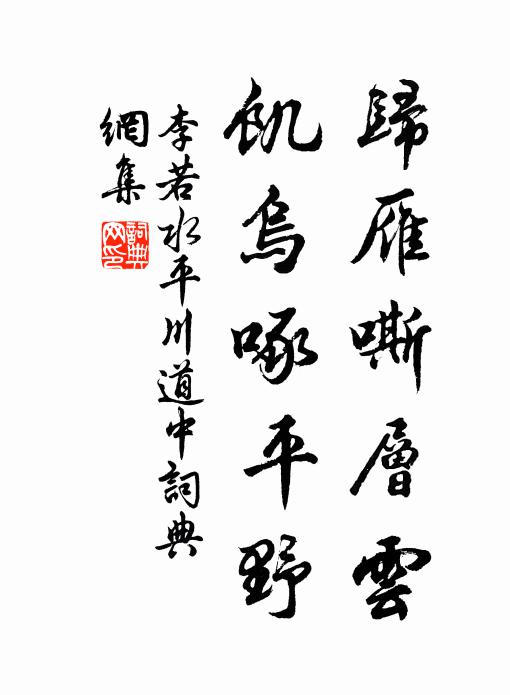 歸雁嘶層雲
飢烏啄平野
李若水平川道中詞典
網集
詞典網印